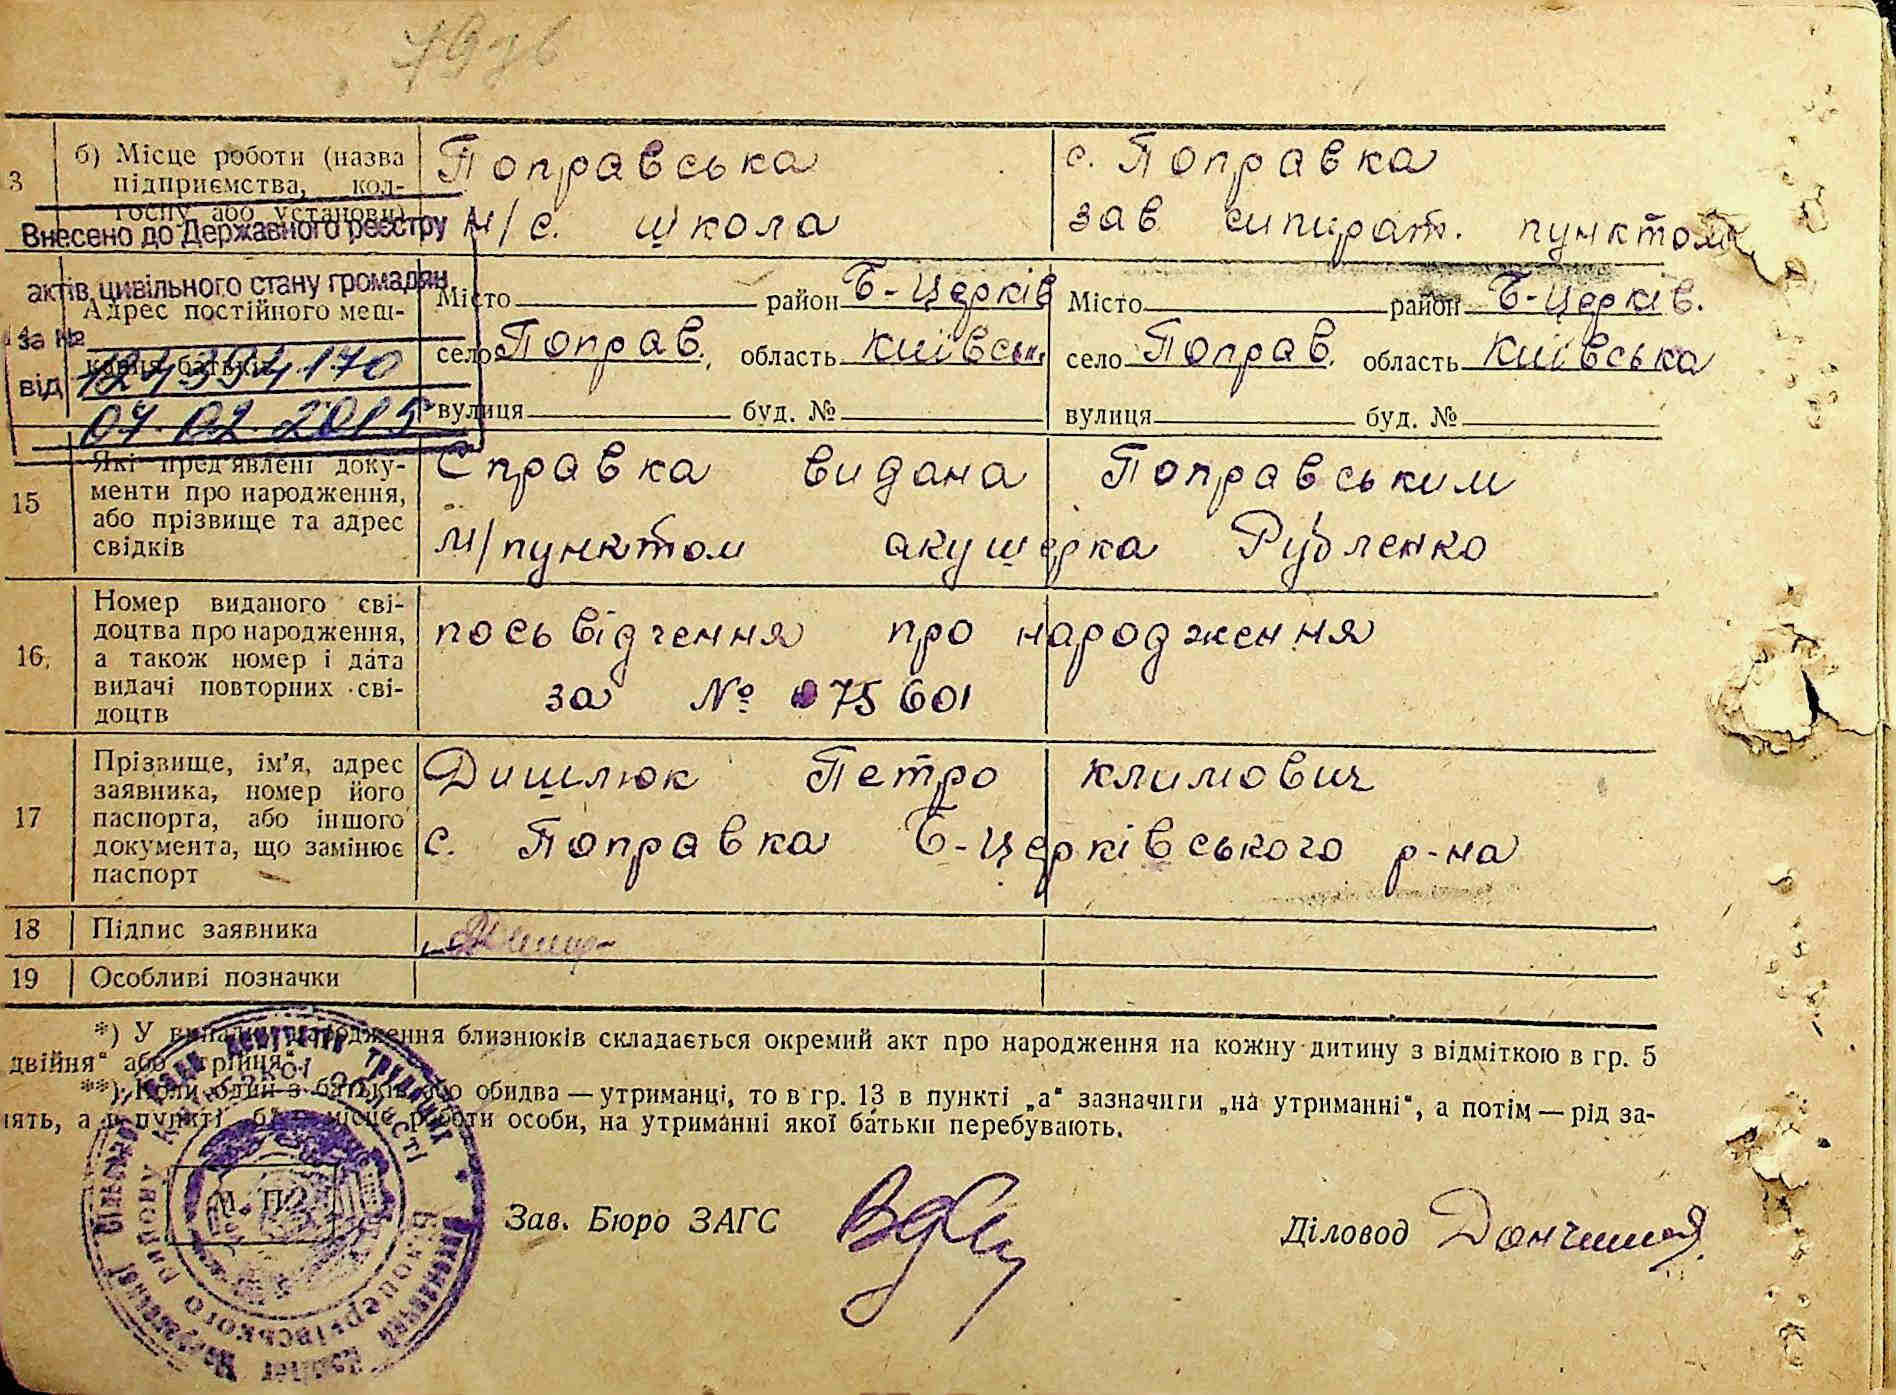 3
б) Місце роботи (назва підприємства, колгоспу або установи)
Поправська
м/с. школа
с. Поправка
зав сипират. пунктом
Внесено до Державного реєстру
актів цивільного стану громадян
за №
124394170
від
04.02.2015
Адрес постійного меш-
Місто район Б-Церків
село Поправ. область Київськ
вулиця буд. №
Місто район Б-Церків.
село Поправ. область Київська
вулиця буд. №
15
Які пред'явлені доку-
менти про народження,
або прізвище та адрес
свідків
Справка видана Поправським
м/пунктом акушерка Рубленко
16
Номер виданого сві-
доцтва про народження,
а також номер і дата
видачі повторних сві-
доцтв
посьвідчення про народження
за № 075601
17
Прізвище, ім'я, адрес
заявника, номер його
паспорта, або іншого
документа, що замінює
паспорт
Дишлюк Петро Климович
с. Поправка Б-Церківського р-на
18
Підпис заявника
19
Особливі позначки
*) У випадку народження близнюків складається окремий акт про народження на кожну дитину з відміткою в гр. 5
двійня" або "трійня".
**) Коли один з батьків або обидва — утриманці, то в гр. 13 в пункті „а" зазначити „на утриманні", а потім — рід за-
нять, а в пункті „б" — місце роботи особи, на утриманні якої батьки перебувають.
М. П.
Зав. Бюро ЗАГС
Діловод